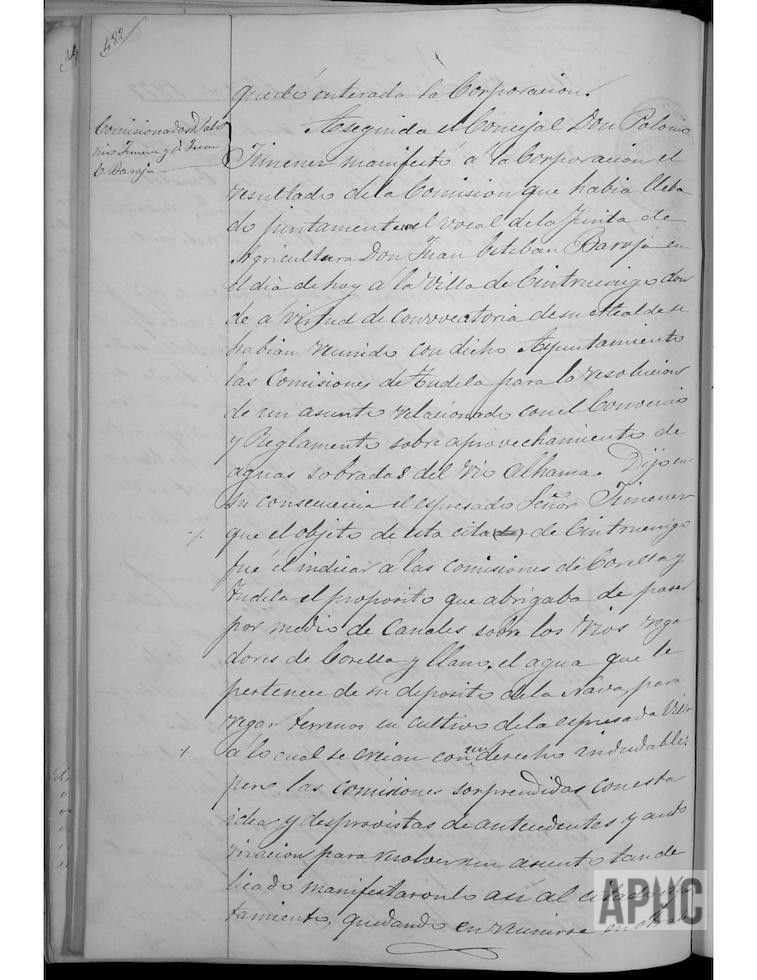 482
Comisionados D. Polo
nio Jimenez y D. Juan
E. Baroja
quedó enterada la Corporacion.
Aseguida el Concejal Don Polonio
Jimenez manifestó á la Corporacion el
resultado de la Comision que habia lleba
do juntamente con el vocal de la Junta de
Agricultura Don Juan Esteban Baroja en
el dia de hoy á la Villa de Cintruenigo don
de á virtud de convocatoria de su Alcalde se
habian reunido con dicho Ayuntamiento
las Comisiones de Tudela para la resolucion
de un asunto relacionado con el Convenio
y Reglamento sobre aprovechamiento de
aguas sobradas del rio Alhama. Dijo en
su consecuencia el espresado Señor Jimenez
que el objeto de esta cita de Cintruenigo
fué el indicar á las comisiones de Corella y
Tudela el proposito que abrigaba de pasar
por medio de Canales sobre los Rios rega
dores de Corella y llano, el agua que le
pertenece de su deposito de la Nava, para
regar terrenos en cultivo de la espresada Villa
á lo cual se creian con un derecho indudable;
pero las comisiones sorprendidas con esta
idea y desprovistas de antecedentes y auto
rizacion para resolver un asunto tan de
licado manifestaronlo asi al citado Ayun
tamiento, quedando en reunirse en
APHC